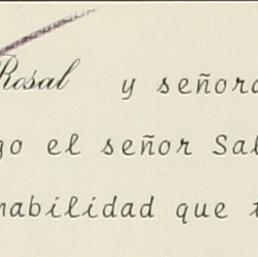 Rosal y señora
go el señor Sal
nabilidad que t